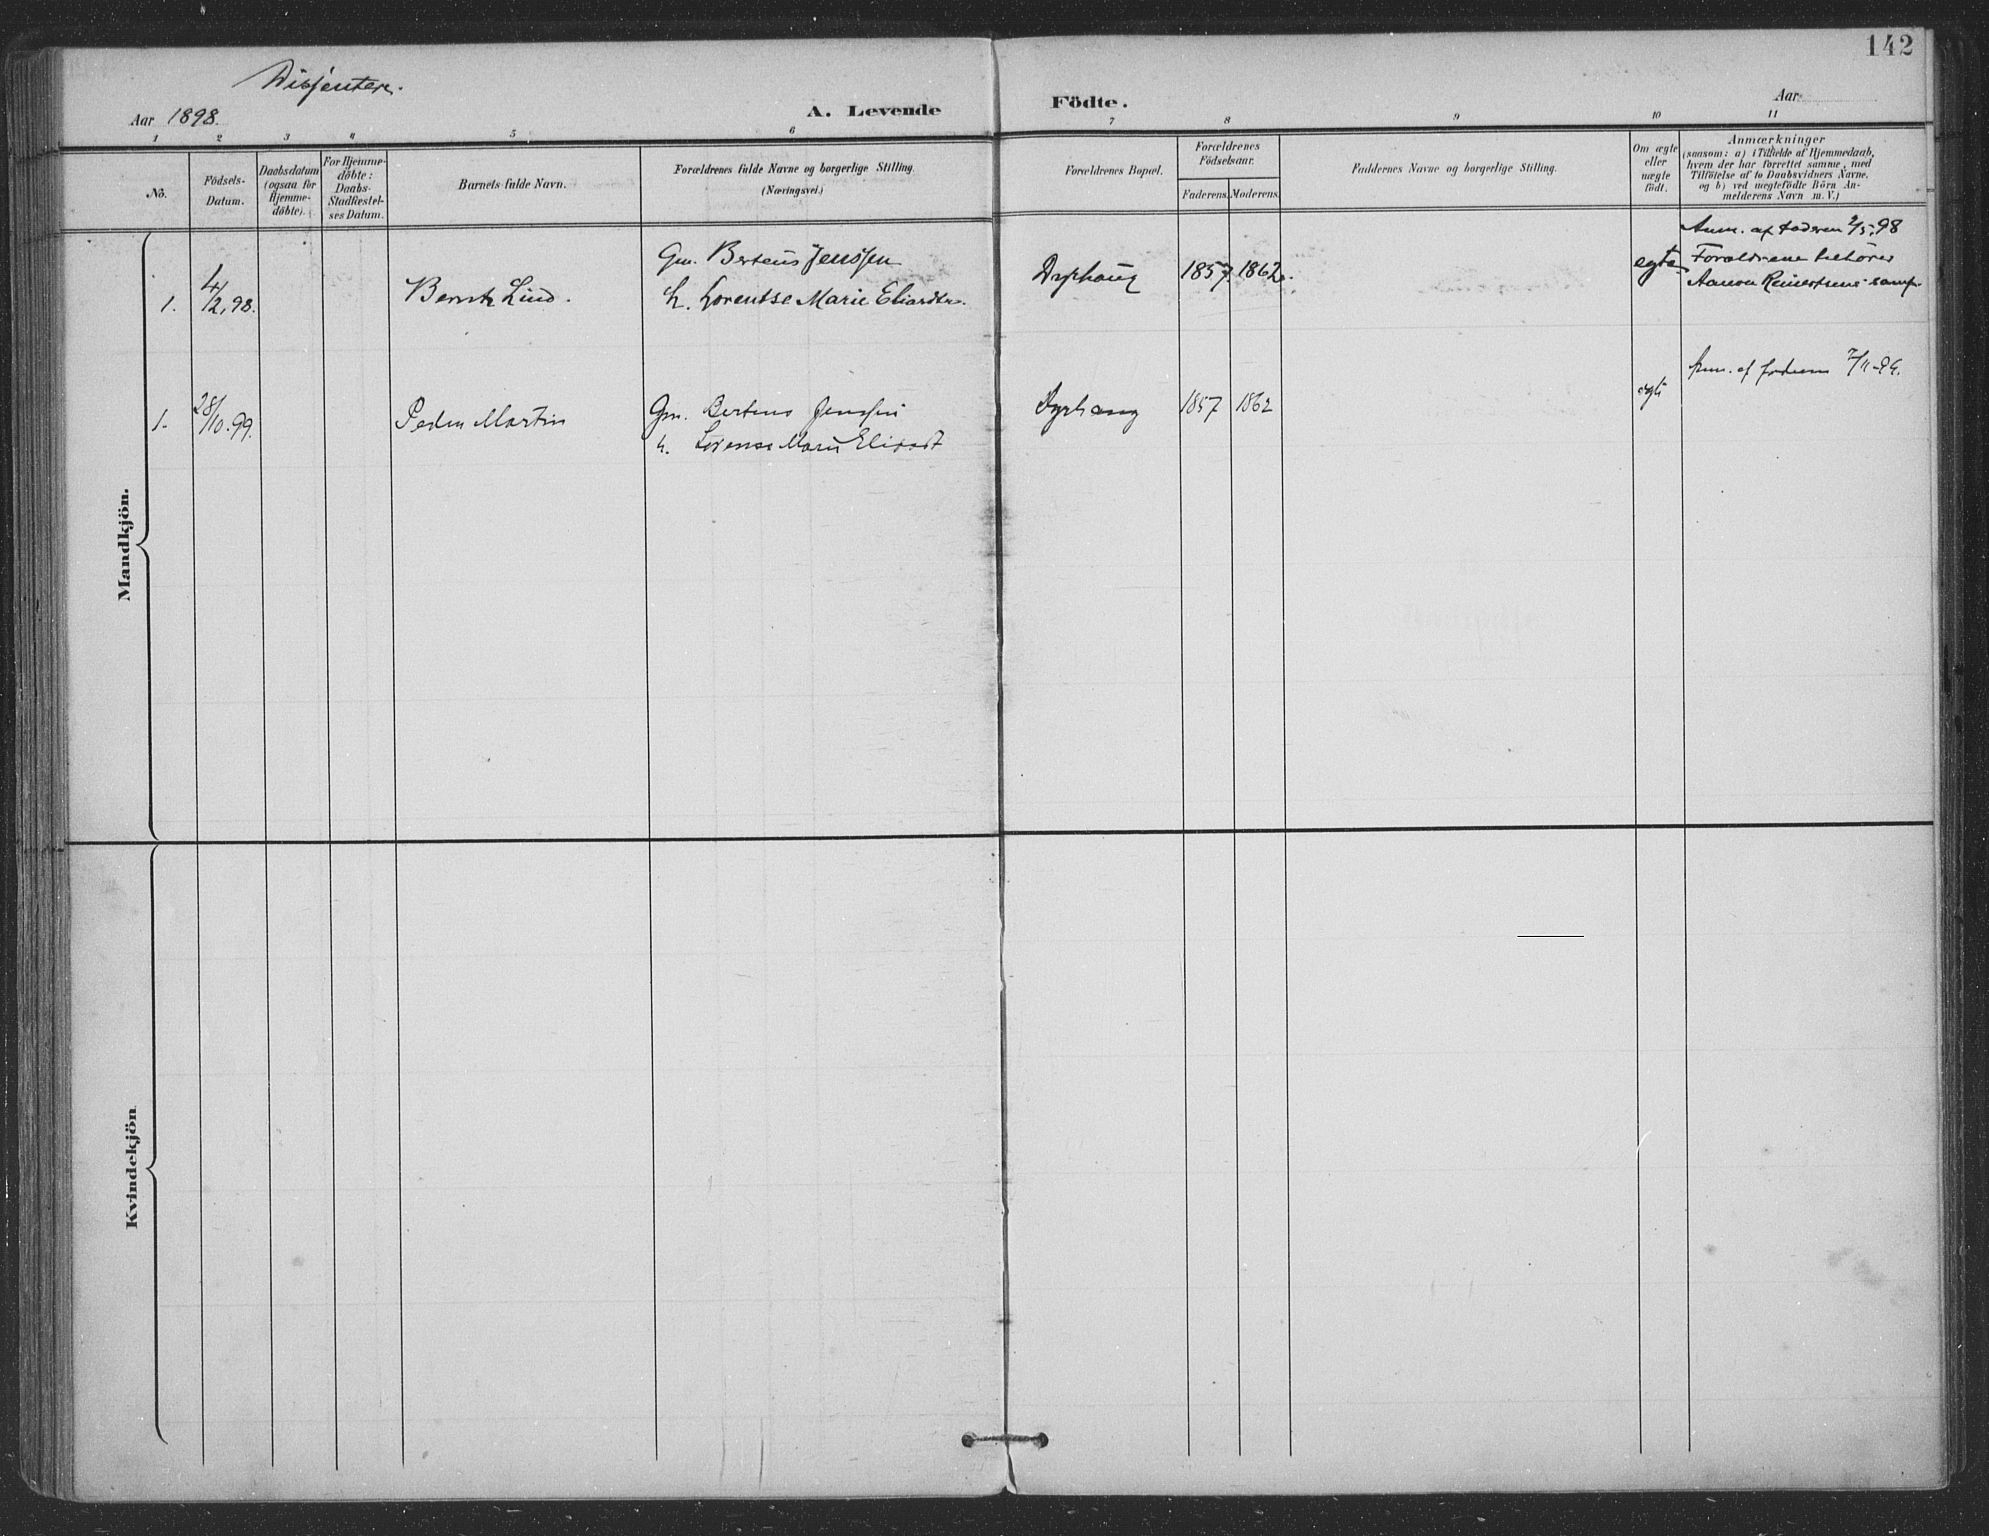 142
Dissentere.
Aar 1898.
A. Levende Födte.
Aar
1 2 3 4 5 6 7 8 9 10 11
No.
Födsels-
Datum.
Daabsdatum
(ogsaa för
Hjemme-
döbte).
For Hjemme-
döbte:
Daabs-
Stadfæstel-
ses Datum.
Barnets fulde Navn.
Forældrenes fulde Navne og borgerlige Stilling.
(Næringsvei.)
Forældrenes Bopæl.
Forældrenes
Födselsaar.
Faderens. Moderens.
Faddernes Navne og borgerlige Stilling.
Om ægte
eller
uægte
født.
Anmærkninger
(saasom: a) i Tilfælde af Hjemmedaab,
hvem der har forrettet samme, med
Tilföielse af to Daabsvidners Navne,
og b) ved uægtefödte Börn An-
melderens Navn m. V.)
Mandkjön.
1.
4/2, 98.
Lind.
Gm. Berteus Jenssen
h. Lorentse Marie Eliardtr.
Dyrhaug
1857.
1862.
egte
Anm. af faderen 2/5, 98
Forældrene tilhører
Reinertsens samf.
1.
28/10. 99.
Peder Martin
Gm. Berteus Jenssen
h. Lorense Marie Eliardt
Dyrhaug
1857
1862
egte
Anm. af faderen 7/11-99.
Kvindekjön